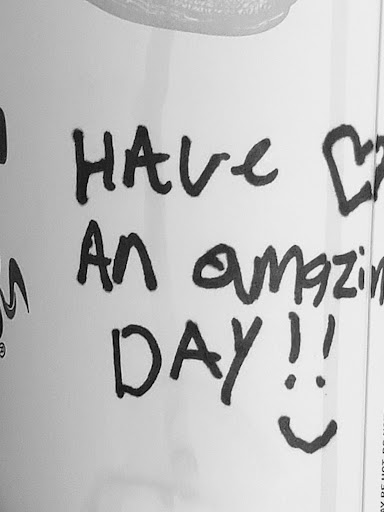 HAVE
AN amazin
DAY!!